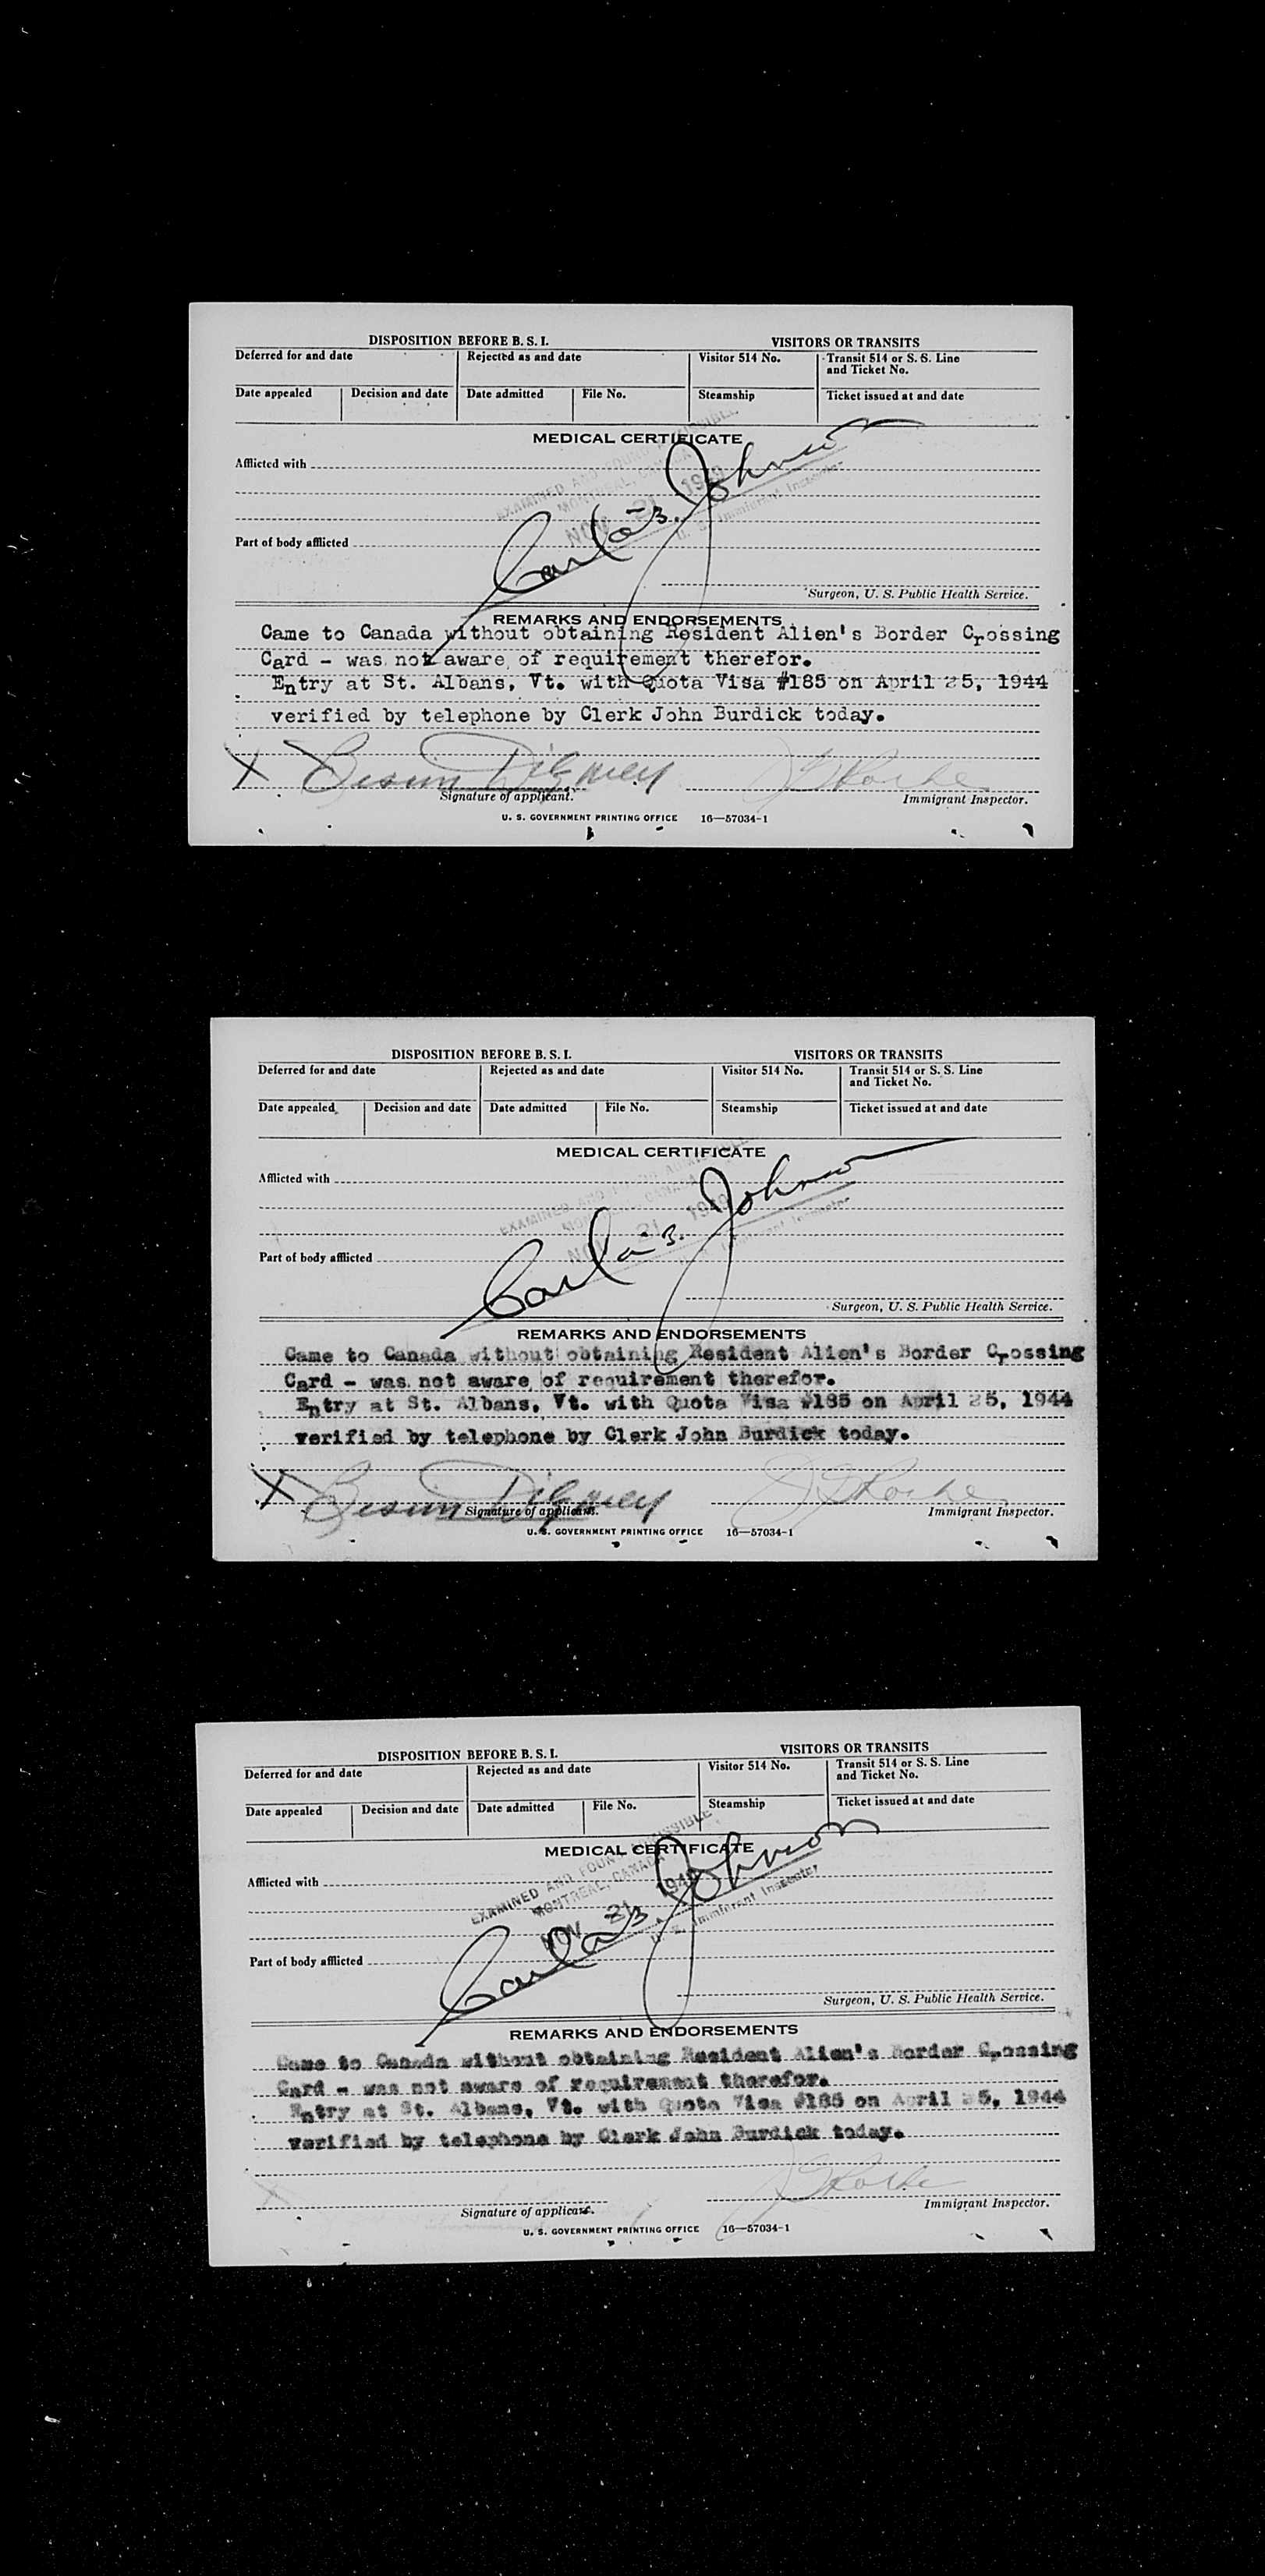 DISPOSITION BEFORE B. S. I. VISITORS OR TRANSITS
Deferred for and date Rejected as and date Visitor 514 No. Transit 514 or S. S. Line
and Ticket No.
Date appealed Decision and date Date admitted File No. Steamship Ticket issued at and date
MEDICAL CERTIFICATE
Afflicted with
EXAMINED AND FOUND
MONTREAL, CANADA
NOV 21 1949
U. S. Immigrant Inspector
Johnson
Part of body afflicted
Surgeon, U. S. Public Health Service.
REMARKS AND ENDORSEMENTS
Came to Canada without obtaining Resident Alien's Border Crossing
Card - was not aware of requirement therefor.
Entry at St. Albans, Vt. with Quota Visa #185 on April 25, 1944
verified by telephone by Clerk John Burdick today.
X
Signature of applicant. Immigrant Inspector.
U. S. GOVERNMENT PRINTING OFFICE 16—57034-1
DISPOSITION BEFORE B. S. I. VISITORS OR TRANSITS
Deferred for and date Rejected as and date Visitor 514 No. Transit 514 or S. S. Line
and Ticket No.
Date appealed Decision and date Date admitted File No. Steamship Ticket issued at and date
MEDICAL CERTIFICATE
Afflicted with
EXAMINED AND
CANADA
NOV 21 1949
Johnson
Part of body afflicted
Surgeon, U. S. Public Health Service.
REMARKS AND ENDORSEMENTS
Came to Canada without obtaining Resident Alien's Border Crossing
Card - was not aware of requirement therefor.
Entry at St. Albans, Vt. with Quota Visa #185 on April 25, 1944
verified by telephone by Clerk John Burdick today.
X
Signature of applicant. Immigrant Inspector.
U. S. GOVERNMENT PRINTING OFFICE 16—57034-1
DISPOSITION BEFORE B. S. I. VISITORS OR TRANSITS
Deferred for and date Rejected as and date Visitor 514 No. Transit 514 or S. S. Line
and Ticket No.
Date appealed Decision and date Date admitted File No. Steamship Ticket issued at and date
MEDICAL CERTIFICATE
Afflicted with
EXAMINED AND FOUND ADMISSIBLE
MONTREAL, CANADA
NOV 21 1949
U. S. Immigrant Inspector
Johnson
Part of body afflicted
Surgeon, U. S. Public Health Service.
REMARKS AND ENDORSEMENTS
Came to Canada without obtaining Resident Alien's Border Crossing
Card - was not aware of requirement therefor.
Entry at St. Albans, Vt. with Quota Visa #185 on April 25, 1944
verified by telephone by Clerk John Burdick today.
X
Signature of applicant. Immigrant Inspector.
U. S. GOVERNMENT PRINTING OFFICE 16—57034-1